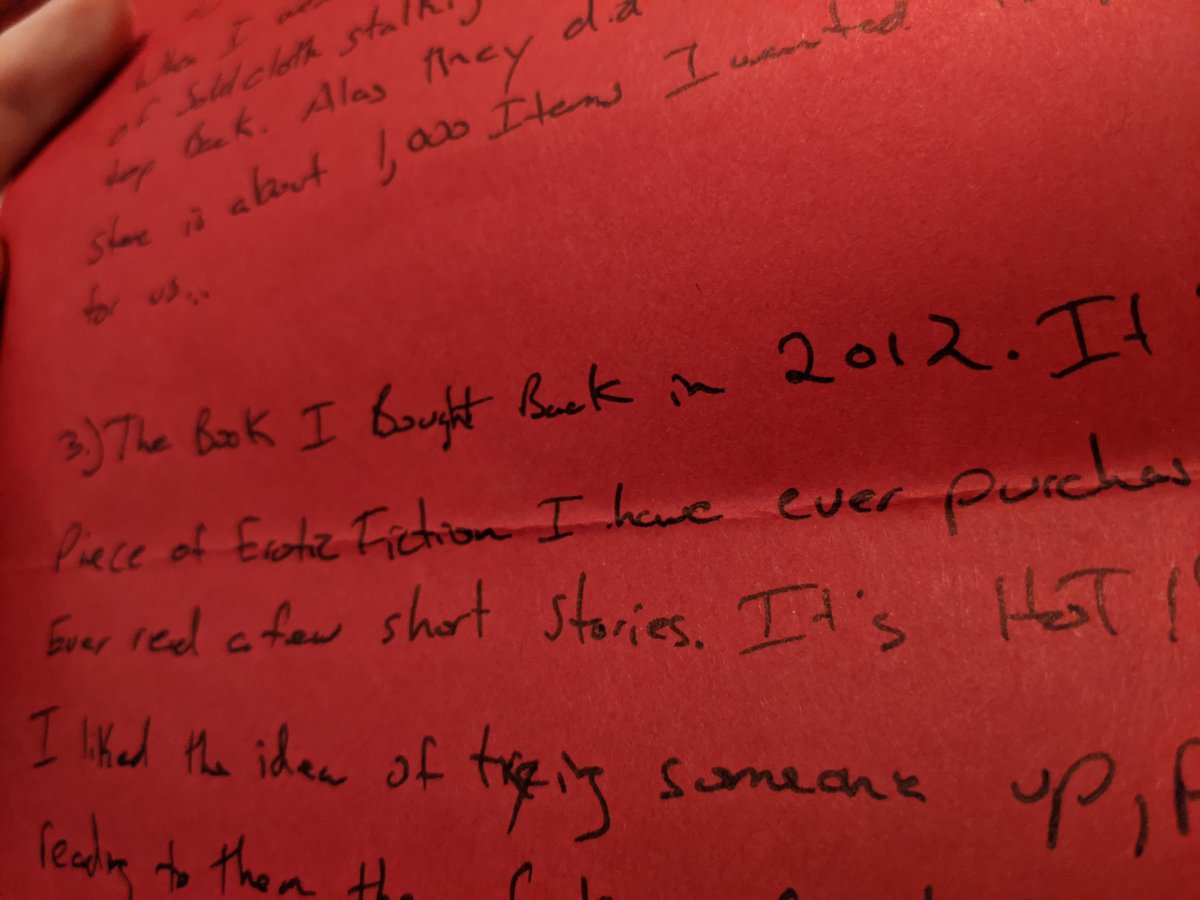 When I
of Solid cloth
back. Alas they did
store is about 1,000 Items I wanted
for us...
3.) The Book I Bought Back in 2012. It
Piece of Erotic Fiction I have ever purchas
Ever red a few short stories. It's HOT!
I liked the idea of someone up,
reading to them the